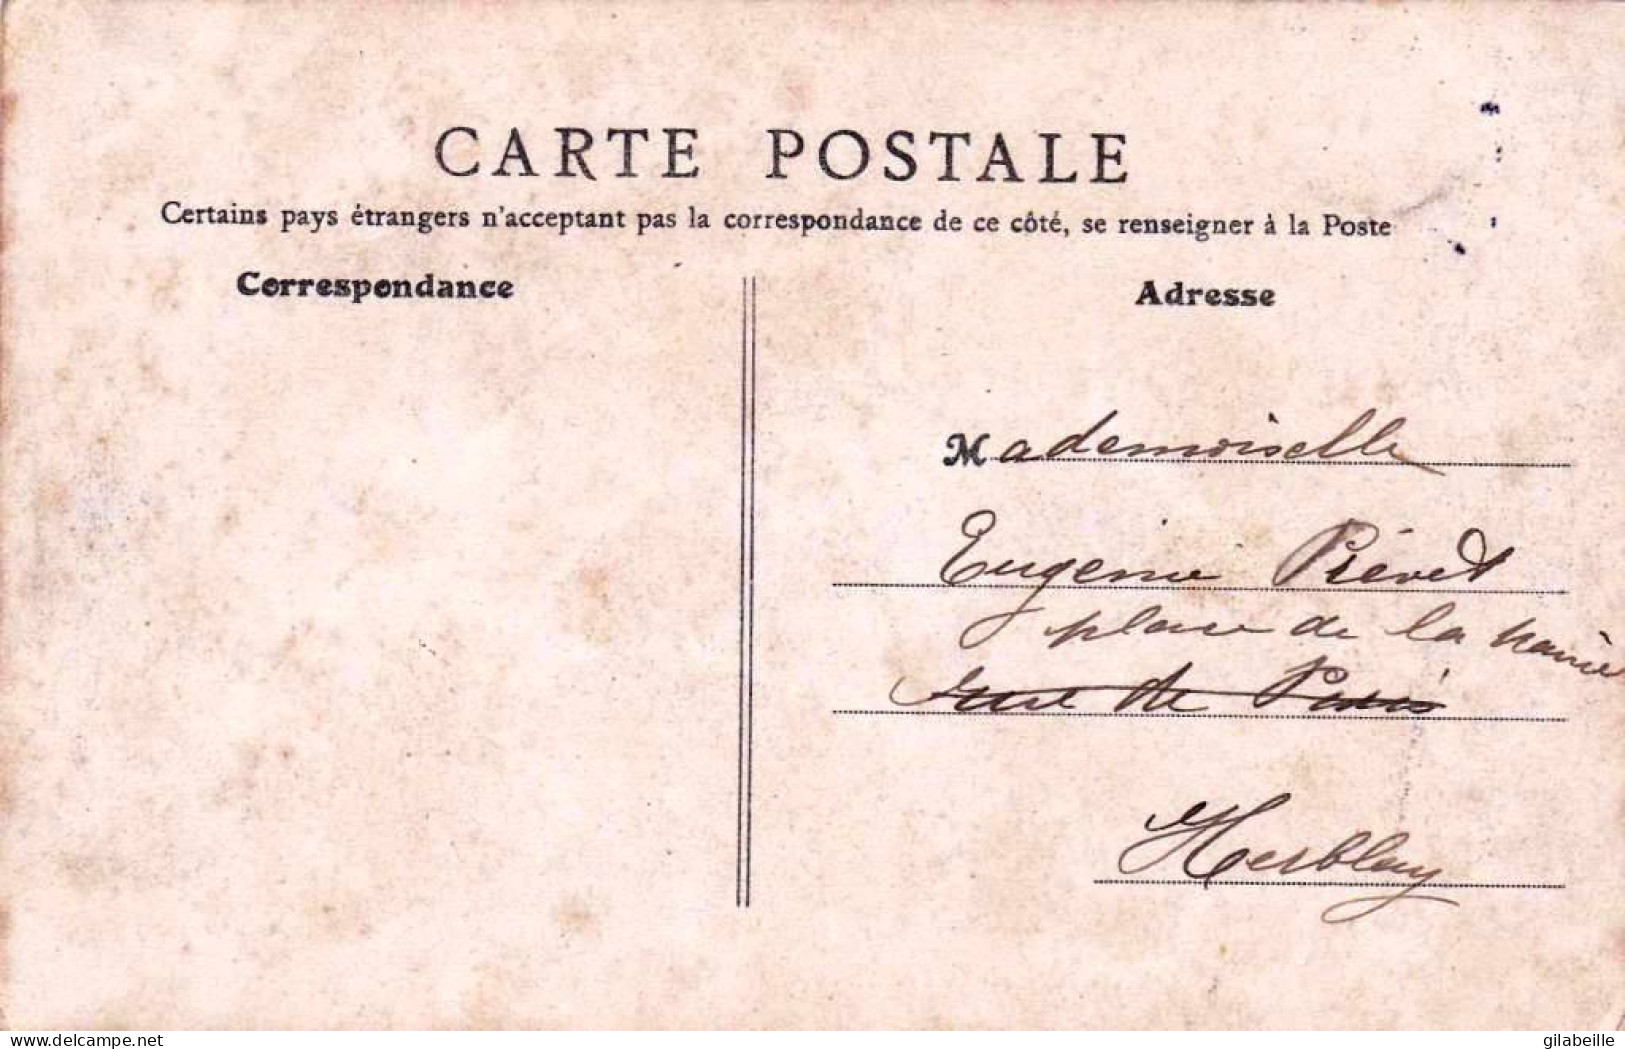 CARTE POSTALE
Certains pays étrangers n'acceptent pas la correspondance de ce côté, se renseigner à la Poste
Correspondance
Adresse
Mademoiselle
Eugenie Piévet
place de la mairie
rue de Paris
Herblay
Website : www.delcampe.net
gilabeille